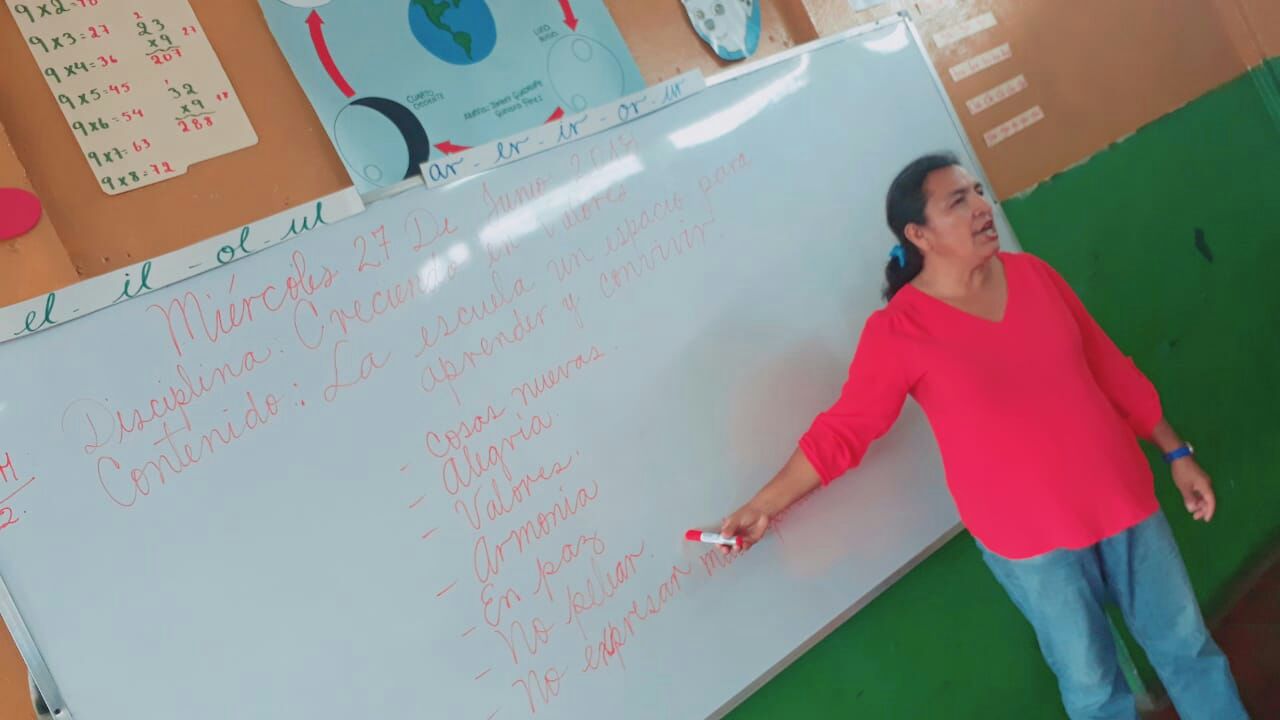 9x2=
9x3=27
9x4=36
9x5=45
9x6=54
9x7=63
9x8=72
2
23
x9
207
27
1
32
x9
288
CUARTO
CRECIENTE
LUNA
el - il - ol - ul
ar - er - ir - or - ur
Miércoles 27 De Junio 2018
Disciplina: Creciendo en Valores
Contenido: La escuela un espacio para
aprender y convivir.
- cosas nuevas.
- Alegría.
- Valores.
- Armonía
- En paz
- No pelear.
- No expresar